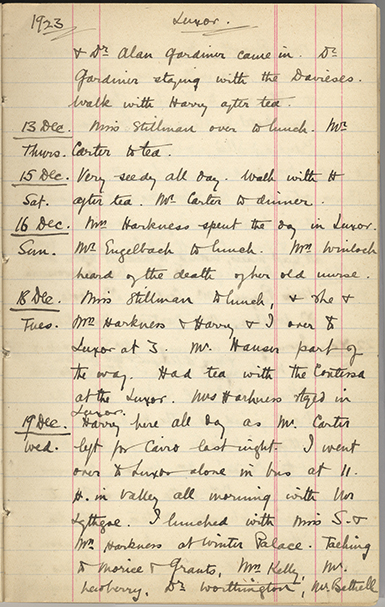 1923 Luxor.
& Dr Alan Gardiner came in. Dr
Gardiner staying with the Davieses.
Walk with Harry after tea.
13 Dec. Miss Stillman over to lunch. Mr
Thurs. Carter to tea.
15 Dec. Very seedy all day. Walk with H
Sat. after tea. Mr Carter to dinner.
16 Dec. Mrs Harkness spent the day in Luxor.
Sun. Mr Engelbach to lunch. Mrs Winlock
heard of the death of her old nurse.
18 Dec. Miss Stillman to lunch, & she &
Tues. Mrs Harkness & Harry & I over to
Luxor at 3. Mr. Hauser part of
the way. Had tea with the Contessa
at the Luxor. Mrs Harkness stayed in
Luxor.
19 Dec. Harry here all day as Mr. Carter
Wed. left for Cairo last night. I went
over to Luxor alone in bus at 11.
H. in Valley all morning with
Lythgoe. I lunched with Miss S. &
Mrs Harkness at Winter Palace. Talking
to Morice & Grants, Mrs Kelly, Mr.
Newberry, Dr Worthington, Mr Bethell